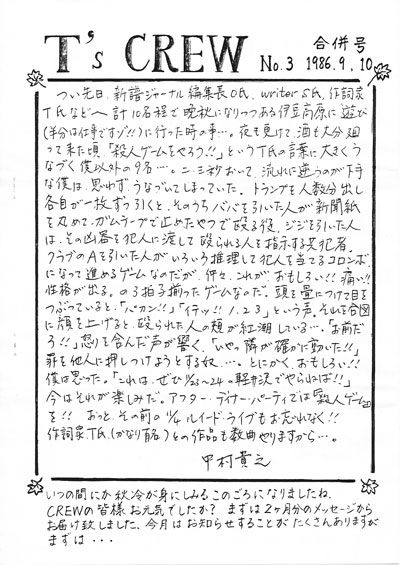 T's CREW
合併号
No.3 1986.9,10
つい先日、新譜ジャーナル編集長O氏、writer S氏、作詞家
T氏などヘ計10名程で晩秋になりつつある伊豆高原に遊び
(半分は仕事ですゾ!!)に行った時の事…。夜も更けて、酒も大分廻
って来た頃、「殺人ゲームをやろう!!」というT氏の言葉に大きくう
なづく僕以外の9名…。二、三秒おいて、流れに逆うのが下手
な僕は、思わず、うなづいてしまっていた。トランプを人数分出し
各自が一枚ずつ引くと、そのうちババを引いた人が新聞紙
を丸めて、ガムテープで止めたやつで殴る役、ジジを引いた人
は、その凶器を犯人に渡して殴られる人を指示する共犯者。
クラブのAを引いた人がいろいろ推理して犯人を当てるコロンボ
になって進めるゲームなのだが、何々、これが、おもしろい!! 痛い!!
性格が出る。の3拍子揃ったゲームなのだ。頭を畳につけて目を
つぶっていると、「パカン!!」「イテッ!! 1.2.3」という声、それを合図
に顔を上げると、殴られた人の頬が紅潮している…。「お前だ
ろ!!」怒りを含んだ声が響く、「いや、隣が確かに動いた!!」
罪を他人に押しつけようとする奴、…。とにかく、おもしろい!!
僕は思った。「これは、ぜひ 23〜24の軽井沢でやらねば!!」
今はそれが楽しみだ。アフター・ディナー・パーティでは「殺人ゲーム」
を!! おっと、その前の 11/4 ルイード・ライブもお忘れなく!!
作詞家T氏(かなり有名)との作品も数曲やりますから…。
中村貴之
いつの間にか秋冷が身にしみるこのごろになりましたね。
CREWの皆様お元気でしたか? まずは2ヶ月分のメッセージから
お届け致しました。今月はお知らせすることがたくさんありますが
まずは・・・